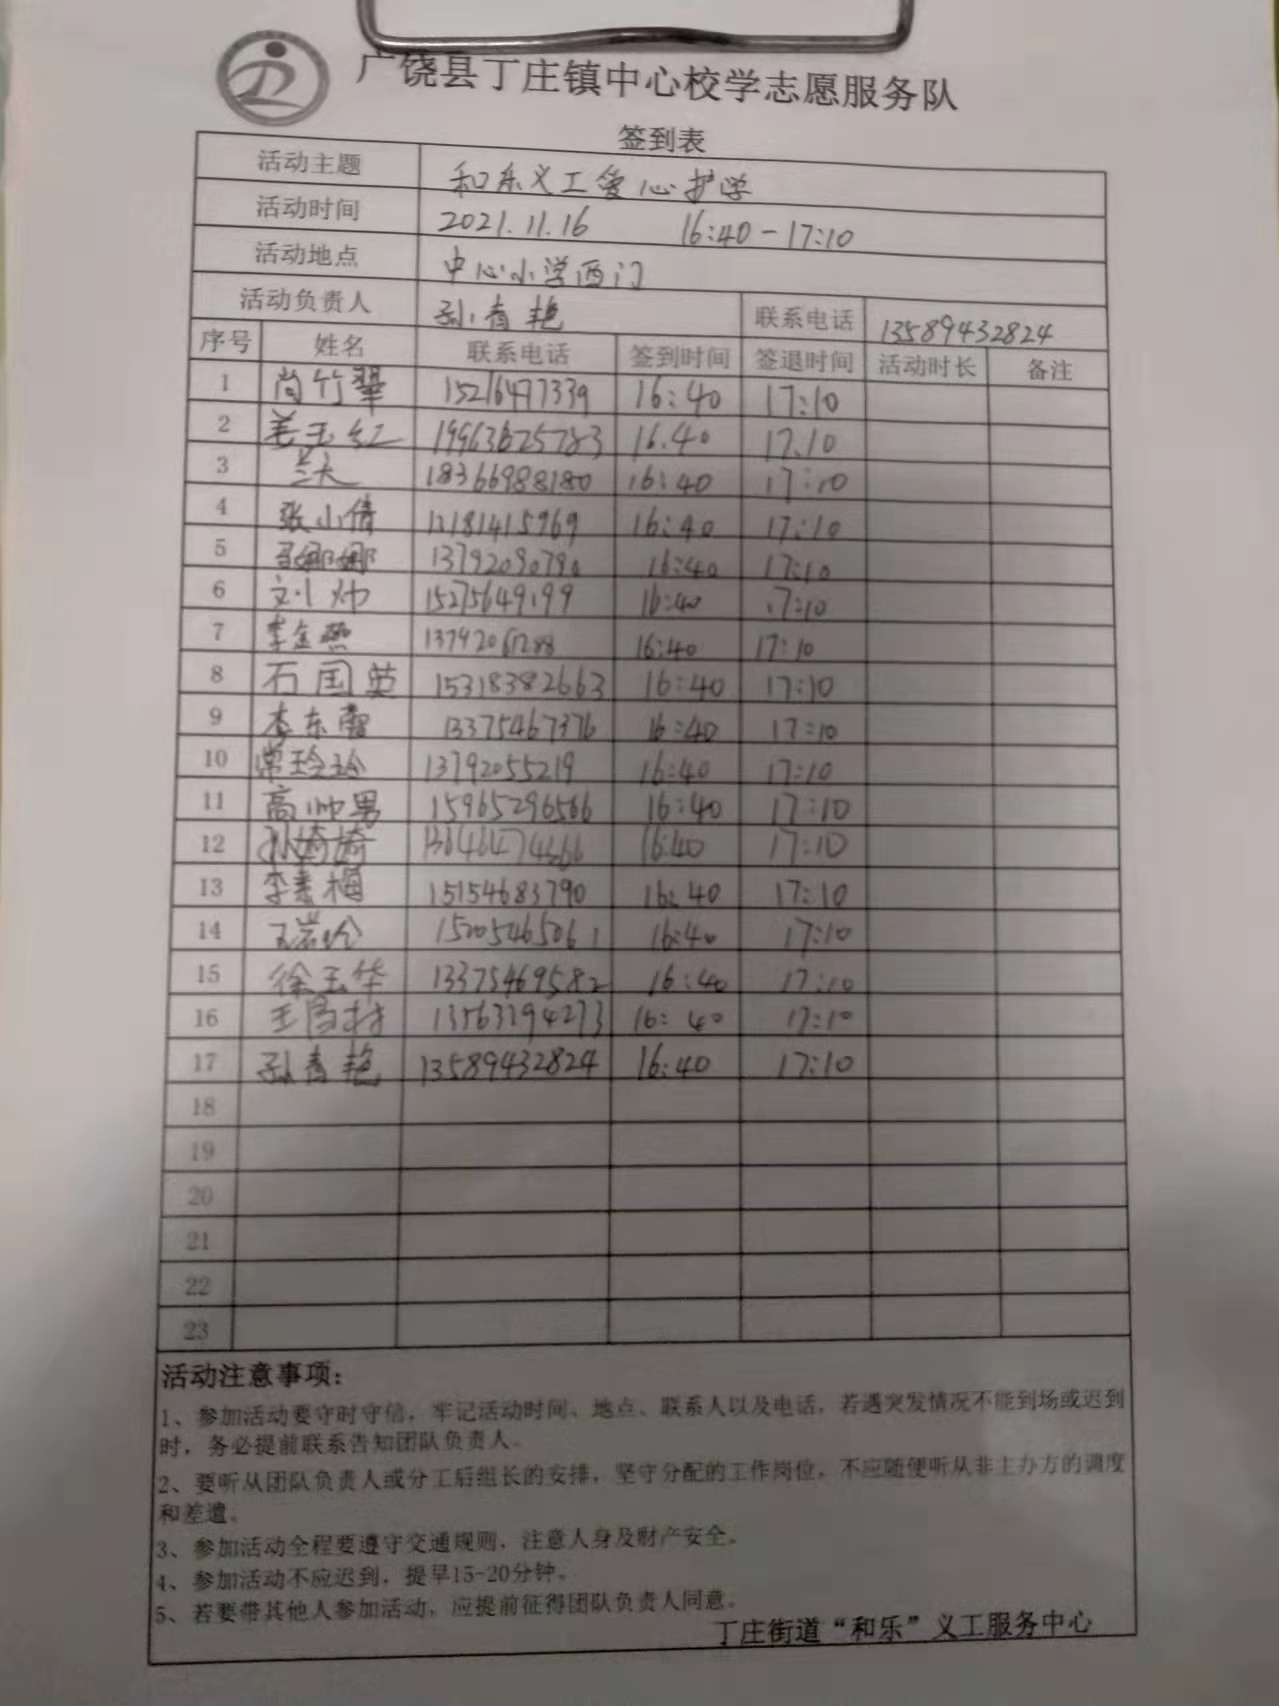 广饶县丁庄镇中心校学志愿服务队
签到表
活动主题 和乐义工爱心护学
活动时间 2021.11.16 16:40-17:10
活动地点 中心小学西门
活动负责人 孙青艳 联系电话 13589432824
序号 姓名 联系电话 签到时间 签退时间 活动时长 备注
1 尚竹翠 15216477339 16:40 17:10
2 姜玉红 19963675783 16.40 17.10
3 18366988180 16:40 17:10
4 张小倩 13181415969 16:40 17:10
5 娜娜 13792090790 16:40 17:10
6 刘帅 15275649199 16:40 17:10
7 李金燕 16:40 17:10
8 石国英 15318382663 16:40 17:10
9 李东 13375467376 16:40 17:10
10 常玲玲 13792055219 16:40 17:10
11 高帅男 15965296566 16:40 17:10
12 孙婷婷 16:40 17:10
13 李素梅 15154683790 16:40 17:10
14 王岩玲 15205465061 16:40 17:10
15 徐玉华 13375469582 16:40 17:10
16 王 13563194273 16:40 17:10
17 孙青艳 13589432824 16:40 17:10
18
19
20
21
22
23
活动注意事项:
1、参加活动要守时守信，牢记活动时间、地点、联系人以及电话，若遇突发情况不能到场或迟到
时，务必提前联系告知团队负责人。
2、要听从团队负责人或分工后组长的安排，坚守分配的工作岗位，不应随便听从非主办方的调度
和差遣。
3、参加活动全程要遵守交通规则，注意人身及财产安全。
4、参加活动不应迟到，提早15-20分钟。
5、若要带其他人参加活动，应提前征得团队负责人同意。
丁庄街道“和乐”义工服务中心